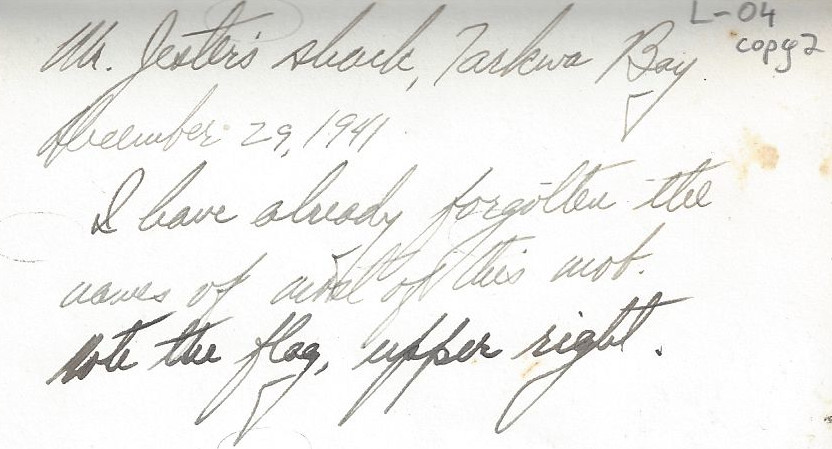 L-04
copy 2
Mr. Jester's shack, Tarkwa Bay
December 29, 1941
I have already forgotten the
names of most of this mob.
Note the flag, upper right.